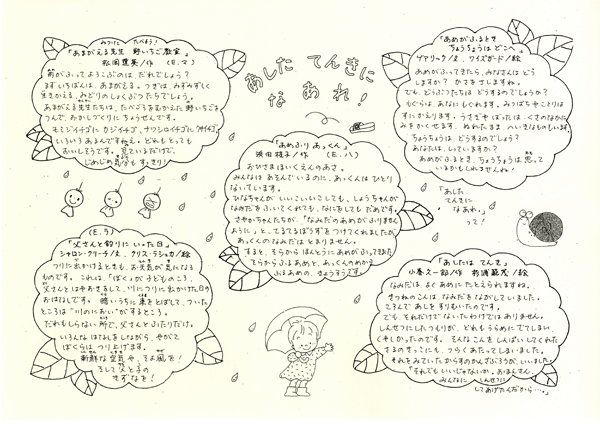 みつけた たべよう！
「あまがえる先生 野いちご教室」
松岡達英／作 （E.マ）
雨がふってよろこぶのは、だれでしょう？
まずいちばんは、あまがえる。つぎは、みずみずしく
生きかえる、みどりのしょくぶつたちでしょう。
あまがえる先生たちは、たべごろをむかえた野いちごを
つんで、おかしづくりにちょうせんです。
モミジイチゴにカジイチゴ、ナワシロイチゴに
いろいろあるんですねえ。どれもとっても
おいしそうです。見ているだけで、
じめじめ気分もすっきり！
あした てんきに
なあれ！
「あめがふるとき
ちょうちょうは どこへ」
ゲアリック／文 ワイスガード／絵
あめがふってきたら、みなさんは どう
しますか？ かさをさしますね。
でも、どうぶつたちは どうするのでしょう？
もぐらは、あなに もぐれます。みつばちや ことりは
すに かえります。うさぎや は くさのなかに
みをかくせます。ぬれたまま へいきなものもいます。
ちょうちょうは、どうするのでしょう？
あなたは、しっていますか？
あめがふるとき、ちょうちょうは 思って
いるかもしれませんね！
「あめふり あっくん」
浜田桂子／作 （E.ハ）
おひさまほいくえんのあさ。
みんなは あそんでいるのに、あっくんは ひとり
ないています。
ひなちゃんが いいこいいこしても、しょうちゃんが
なみだをふいてくれても、なにをしても だめです。
さやかちゃんたちが、「なみだのあめが ふりません
ように」と、てるてるぼうずをつけてくれましたが
あっくんの なみだは とまりません。
すると、そらから ほんとうに あめがふってきました
そらからふるあめと、あっくんのめから
ふるあめの、きょうそうです。
「あした、
てんきに
なあれ。」
って！
（E.ラ）
「父さんと釣りにいった日」
シャロン・クリーチ／文 クリス・ラシュカ／絵
つりに出かけるときも、お天気が気になる
ものです。これは、「ぼく」が子どものころ、
父さんとはやおきをして、川につりに出かけた日の
おはなしです。暗いうちに車をとばして、ついた
ところは“川のにおい”がするところ。
だれもしらない所で、父さんとふたりだけ。
いろんなはなしをしながら、やがて
ぼくらは つり上げます。
新鮮な空気や、そよ風を！
そして父と子の
きずなを！
「あしたは てんき」
小春久一郎／作 杉浦範茂／絵
なみだは、よく あめに たとえられますね。
きつねのこんは なみだを ながしていました。
てるんで あしを すりむいたのです。
でも、それだけで ないたわけでは ありません。
しんせつにしたつもりが、どれも うらめにでてしまい、
くやしかったのです。そんな こんを しんぱいしてくれた
さるのきっこにも、つらくあたってしまいました。
それを みていた からすのかんざぶろうが、いいました。
「それでも いいじゃないか。おまえさん、
みんなに しんせつに
してあげたんだから…。」